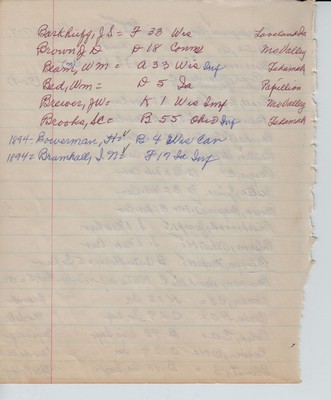 Barkhuff, J S = F 28 Wis Loveland
Brown, J D D 18 Conn Mo Valley
Beam, Wm = A 33 Wis Inf Tekamah
Bed, Wm = D 5 Ia Papillion
Brewer, JW = K 1 Wis Inf Mo Valley
Brooks, SC = B 55 Ohio Inf Tekamah
1894 - Bowerman, H = B 4 Wis Cav
1894 = Bramhall, I N = F 17 Ia Inf